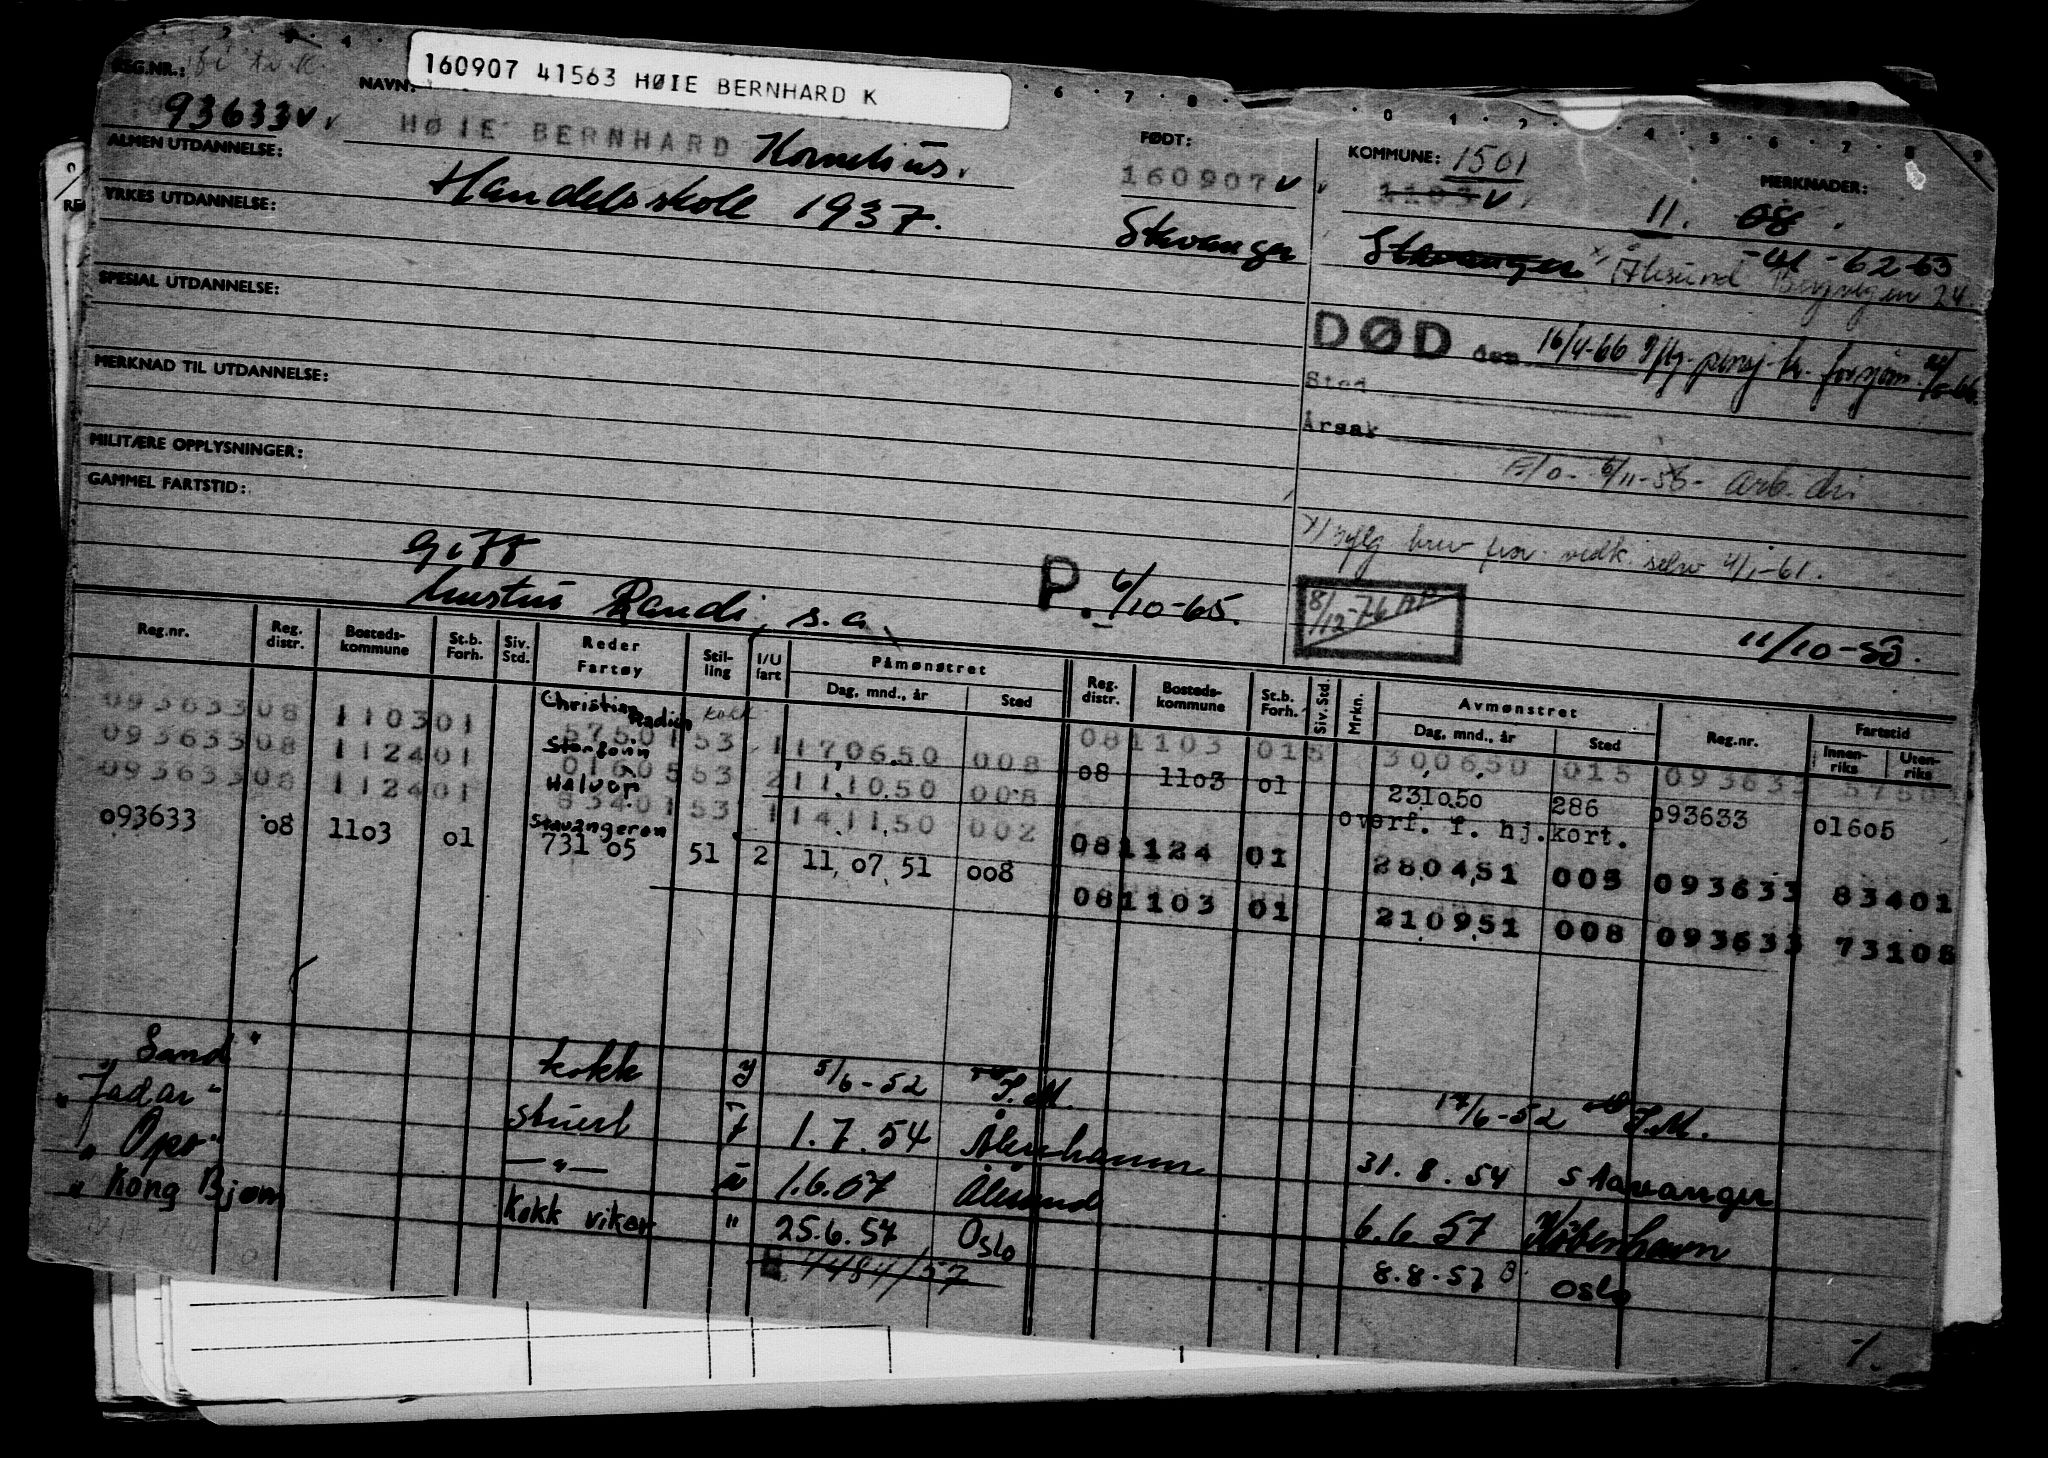 160907 41563 HØIE BERNHARD K
REG.NR.:
93633 v
NAVN:
HØIE BERNHARD Kornelius.
FØDT:
160907 v
Stavanger
KOMMUNE: 1501
1103 v
Stavanger Ålesund Bergvegen 24
MERKNADER:
11. 08
-41-62-63
ALMEN UTDANNELSE:
Handelsskole 1937.
YRKES UTDANNELSE:
SPESIAL UTDANNELSE:
MERKNAD TIL UTDANNELSE:
MILITÆRE OPPLYSNINGER:
GAMMEL FARTSTID:
DØD den 16/4-66
Sted
Årsak
6/11-56- arb. dir
brev fra vedk. selv 4/1-61.
8/12-76
11/10-53.
Gift
hustru Randi, s.a.
P. 6/10-65.
Reg.nr. Reg. distr. Bosteds-kommune St.b. Forh. Siv. Std. Reder Fartøy Stil-ling I/U fart Påmønstret Dag, mnd., år Sted Reg. distr. Bosteds-kommune St.b. Forh. Siv. Std. Mrkn. Avmønstret Dag, mnd., år Sted Reg.nr. Fartstid Innen-riks Uten-riks
093633 08 1103 01 Christian Radich 57501 53 kokk 1 170650 008 08 1103 01 300650 015 093633 57501
093633 08 1124 01 Storfonn 01605 53 2 111050 008 08 1103 01 231050 286 093633 01605
093633 08 1124 01 Halvor 83401 53 1 141150 002 overf. f. hj.kort.
08 1124 01 280451 005 093633 83401
093633 08 1103 01 Stavangeren 731 05 51 2 11 07 51 008 08 1103 01 210951 008 093633 73105
Sand" kokk 5/6-52 S.M. 17/6-52 S.M.
"Jadar" stuert I 1.7.54 Åkrehamn 31.8.54 Stavanger
"Opro" —"— U 1.6.57 Ålesund 6.6.57 København
"Kong Bjørn Kokk vikar " 25.6.57 Oslo 8.8.57 Oslo
1484/57